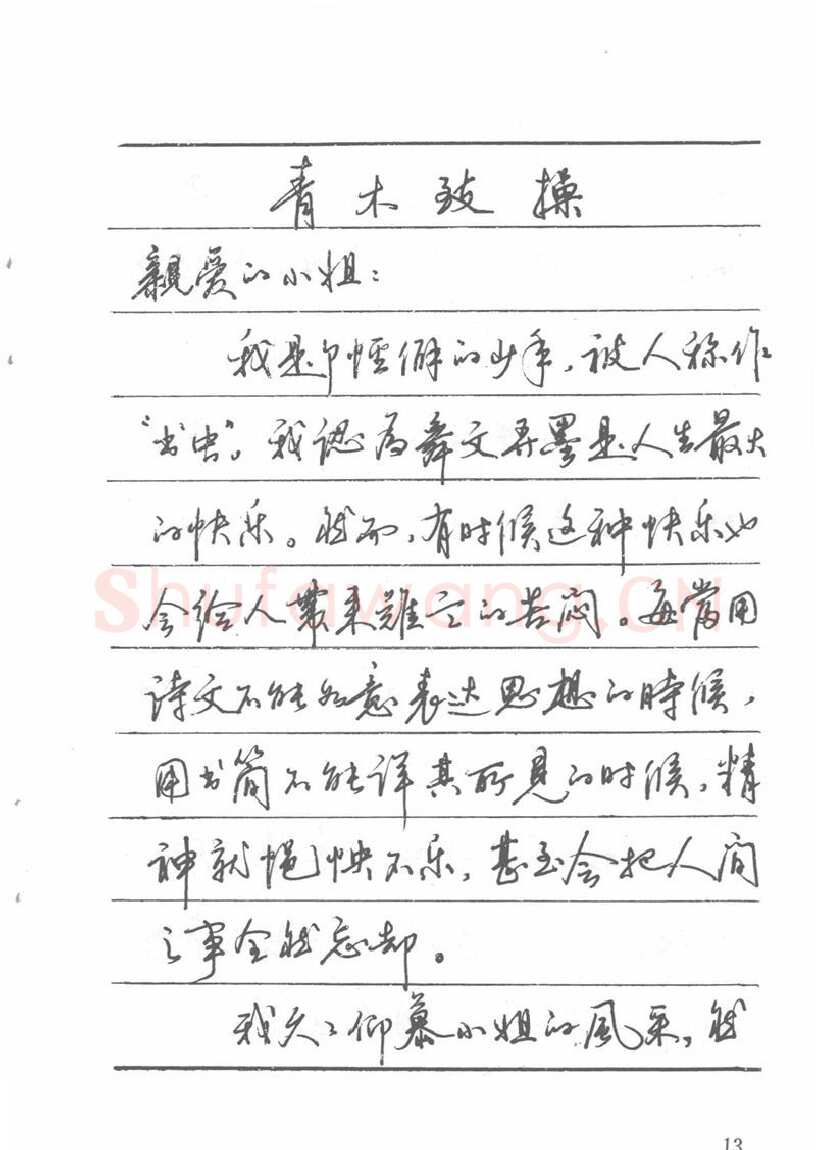 青木致操
親爱的小姐：
我是个怪僻的少年，被人称作
“书虫”。我認为舞文弄墨是人生最大
的快乐。然而，有时候这种快乐也
会给人帶来難言的苦闷。每當用
诗文不能如意表达思想的時候，
用书简不能详其所見的时候，精
神就悒怏不乐，甚至会把人间
之事全然忘却。
我久久仰慕小姐的風采，然
Shufawang.CN
13